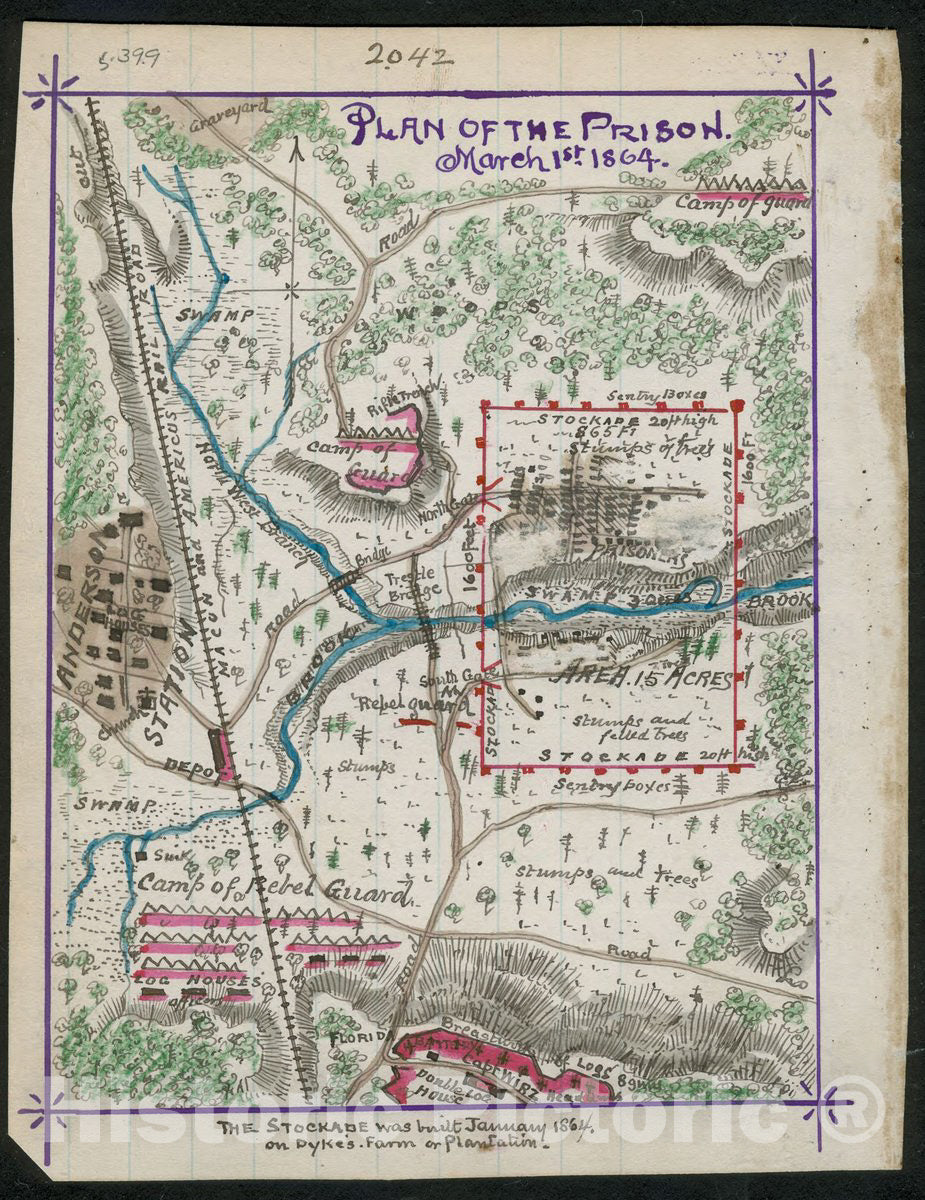 5.399
2042
Graveyard
PLAN OF THE PRISON.
March 1st 1864.
Cut
Camp of guard
Road
SWAMP
WOODS
MACON and AMERICUS RAIL ROAD
Rifle Trench
Camp of
Guard
Sentry Boxes
STOCKADE 20ft high
865 Ft
Stumps of trees
1600 Ft
STOCKADE
North West Branch
North Gate
1600 Feet
PRISONERS
Bridge
Trestle
Bridge
SWAMP 3 Acres
BROOK
ANDERSON
STATION
Road
South Gate
Rebel guard
AREA. 15 ACRES
STOCKADE
stumps and
felled trees
STOCKADE 20ft high
Sentry boxes
Church
DEPOT
Stumps
SWAMP
Sink
Camp of Rebel Guard
stumps and trees
Road
LOG HOUSES
officers
Road
FLORIDA
BATTERY
Breastwork of Logs
8 guns
Capt WIRZ
Head
Double LOG
House
THE STOCKADE was built January 1864.
on Dykes. Farm or Plantation.
Historic Pictoric ®